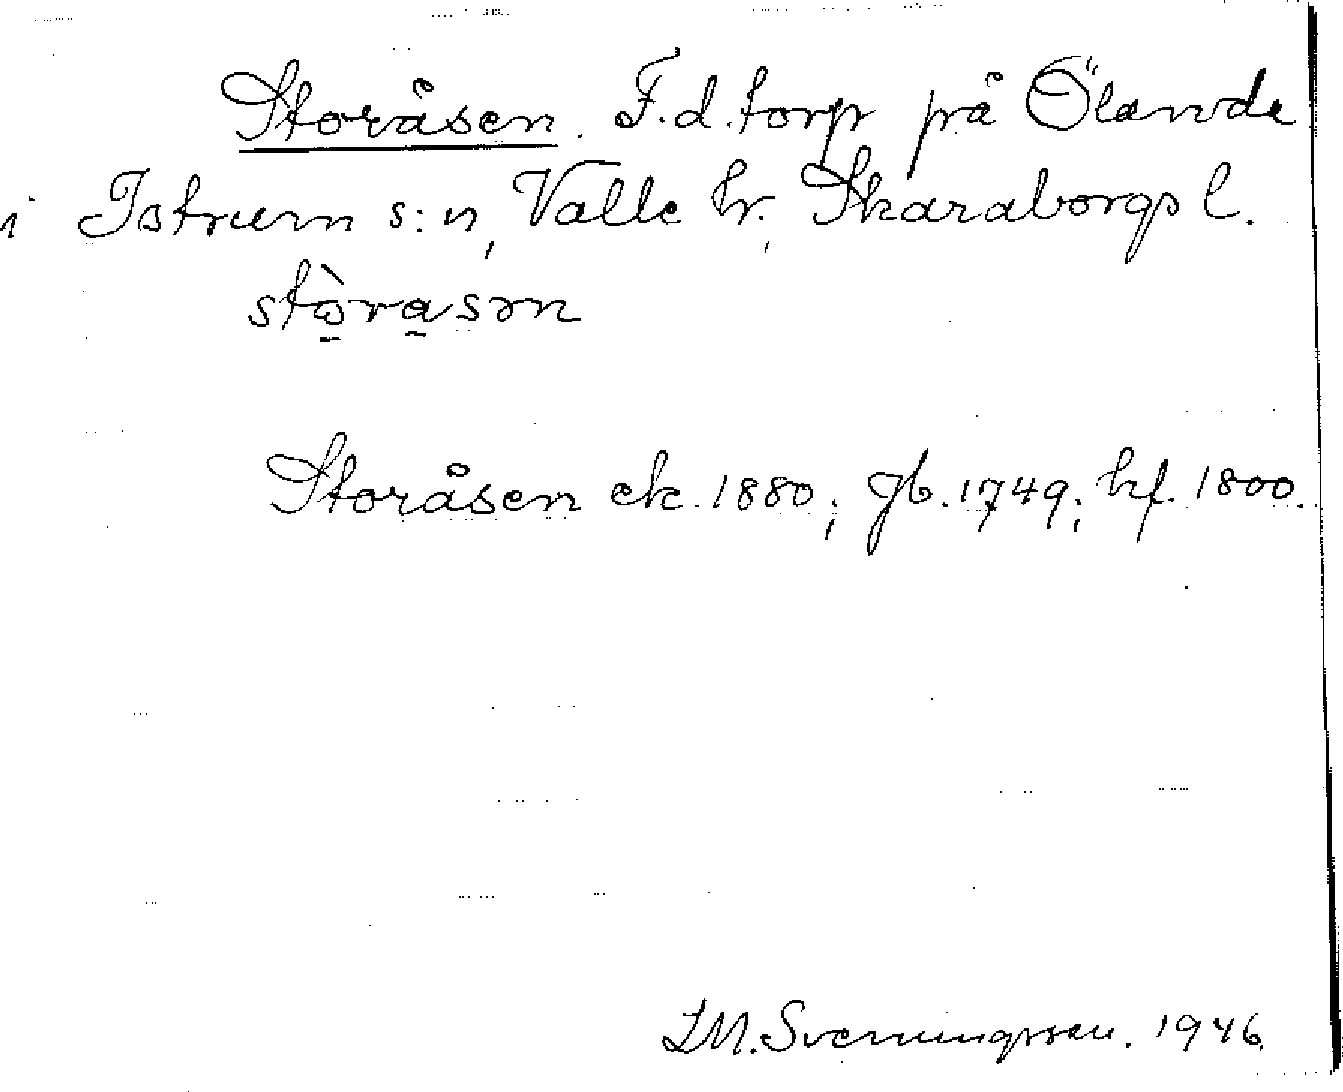 Storåsen. F.d. torp på Ölanda
i Istrum s:n, Valle hr, Skaraborgs l.
stòrasən
Storåsen ek. 1880; gb. 1749; hf. 1800.
L.M. Svenningsson. 1946.